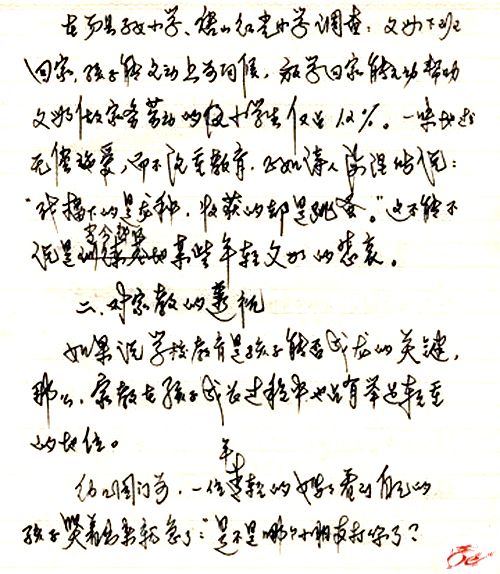 在易县子女小学、唐山红光小学调查：父母下班
回家，孩子能主动上前问候，放学回家能主动帮助
父母做家务劳动的仅小学生仅占12%。一味地
无偿溺爱，而不注重教育，正如诗人海涅所说：
"我播下的是龙种，收获的却是跳蚤。"这不能不
说是当今某些年轻父母的悲哀。
二、对家教的蔑视
如果说学校教育是孩子能否成龙的关键，
那么，家教在孩子成长过程中也占有举足轻重
的地位。
幼儿园门前，一位年轻的妈妈看到自己的
孩子哭着出来就急了："是不是哪个小朋友打你了？